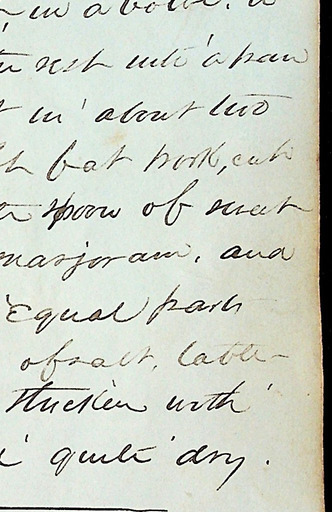 in a bowl. a
rest into a pan
in about two
fat pork, cut
spoon of sweet
marjoram, and
Equal parts
of salt, table-
thicken with
quite dry.